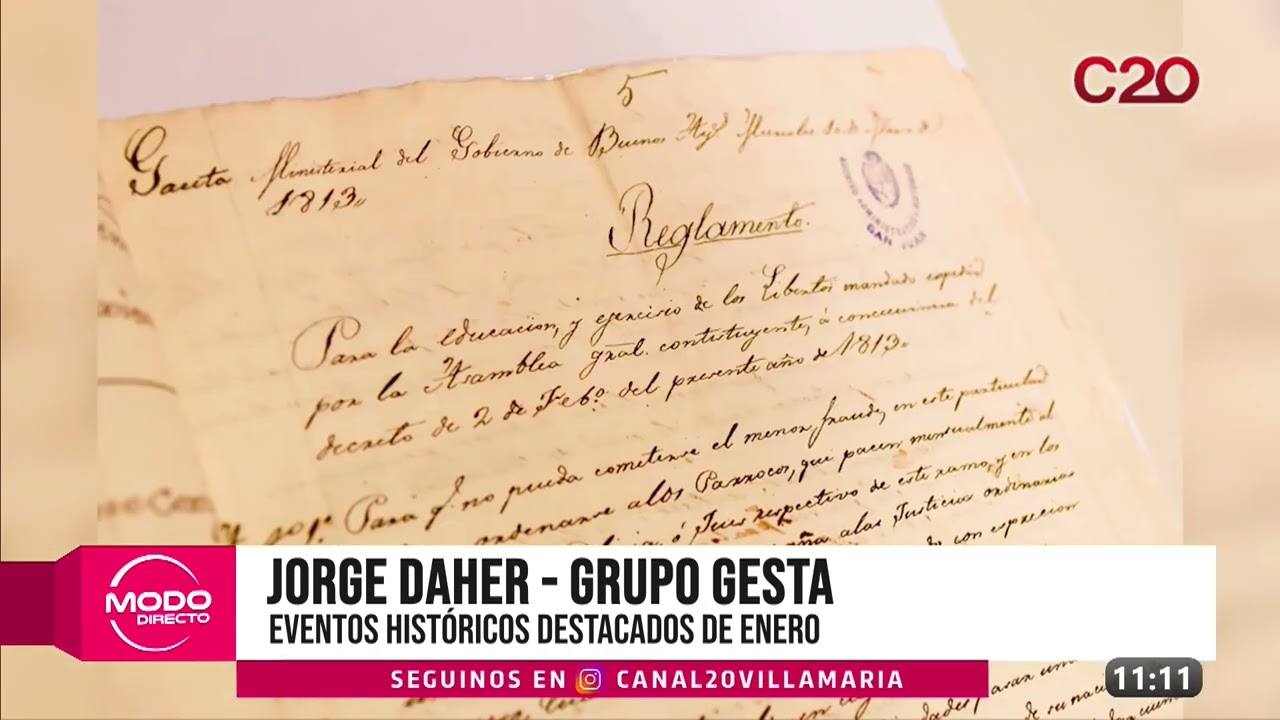 C20
5
Gaceta Ministerial del Gobierno de Buenos Ayˢ
1813
Reglamento.
SAN JUAN
Para la educacion, y egercisio de los Libertos mandado
por la Asamblea gral. contituyente, á
decreto de 2 de Febº del presente año de 1813
Para q.ᵉ no pueda cometerse el menor fraude, en este particular
ordenarse alos Parrocos, que pacen mensualmente al
respectivo de este ramo, y en los
alas Justicias ordinarias
con espresion
MODO
DIRECTO
JORGE DAHER - GRUPO GESTA
EVENTOS HISTÓRICOS DESTACADOS DE ENERO
SEGUINOS EN CANAL20VILLAMARIA
11:11